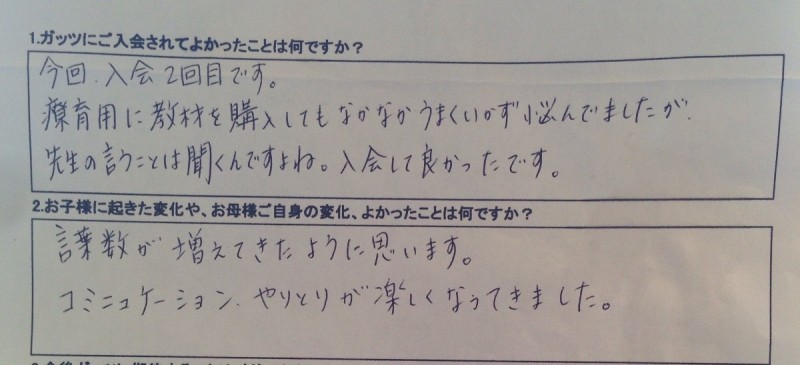 1.ガッツにご入会されてよかったことは何ですか？
今回、入会2回目です。
療育用に教材を購入してもなかなかうまくいかず悩んでましたが、
先生の言うことは聞くんですよね。入会して良かったです。
2.お子様に起きた変化や、お母様ご自身の変化、よかったことは何ですか？
言葉数が増えてきたように思います。
コミニュケーション、やりとりが楽しくなってきました。